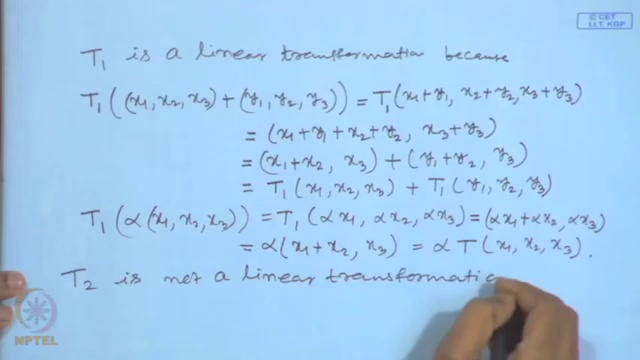 © CET
I.I.T. KGP
T₁ is a linear transformation because
T₁((x₁, x₂, x₃) + (y₁, y₂, y₃)) = T₁(x₁+y₁, x₂+y₂, x₃+y₃)
= (x₁+y₁+x₂+y₂, x₃+y₃)
= (x₁+x₂, x₃) + (y₁+y₂, y₃)
= T₁(x₁, x₂, x₃) + T₁(y₁, y₂, y₃)
T₁(α(x₁, x₂, x₃)) = T₁(αx₁, αx₂, αx₃) = (αx₁+αx₂, αx₃)
= α(x₁+x₂, x₃) = αT(x₁, x₂, x₃).
T₂ is not a linear transformatio
NPTEL